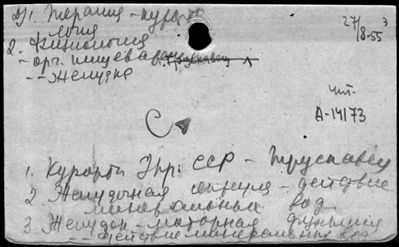 1. Терапия - курорто
логия
2. Физиология
- орг. пищевар
Трускавец
-- Желудка
27/8-55
Э
чит.
А-14173
С
1. Курорты Укр. ССР - Трускавец
2. Желудочная секреция - действие
минеральных вод.
3. Желудок - моторная функция
-- действие минеральных вод